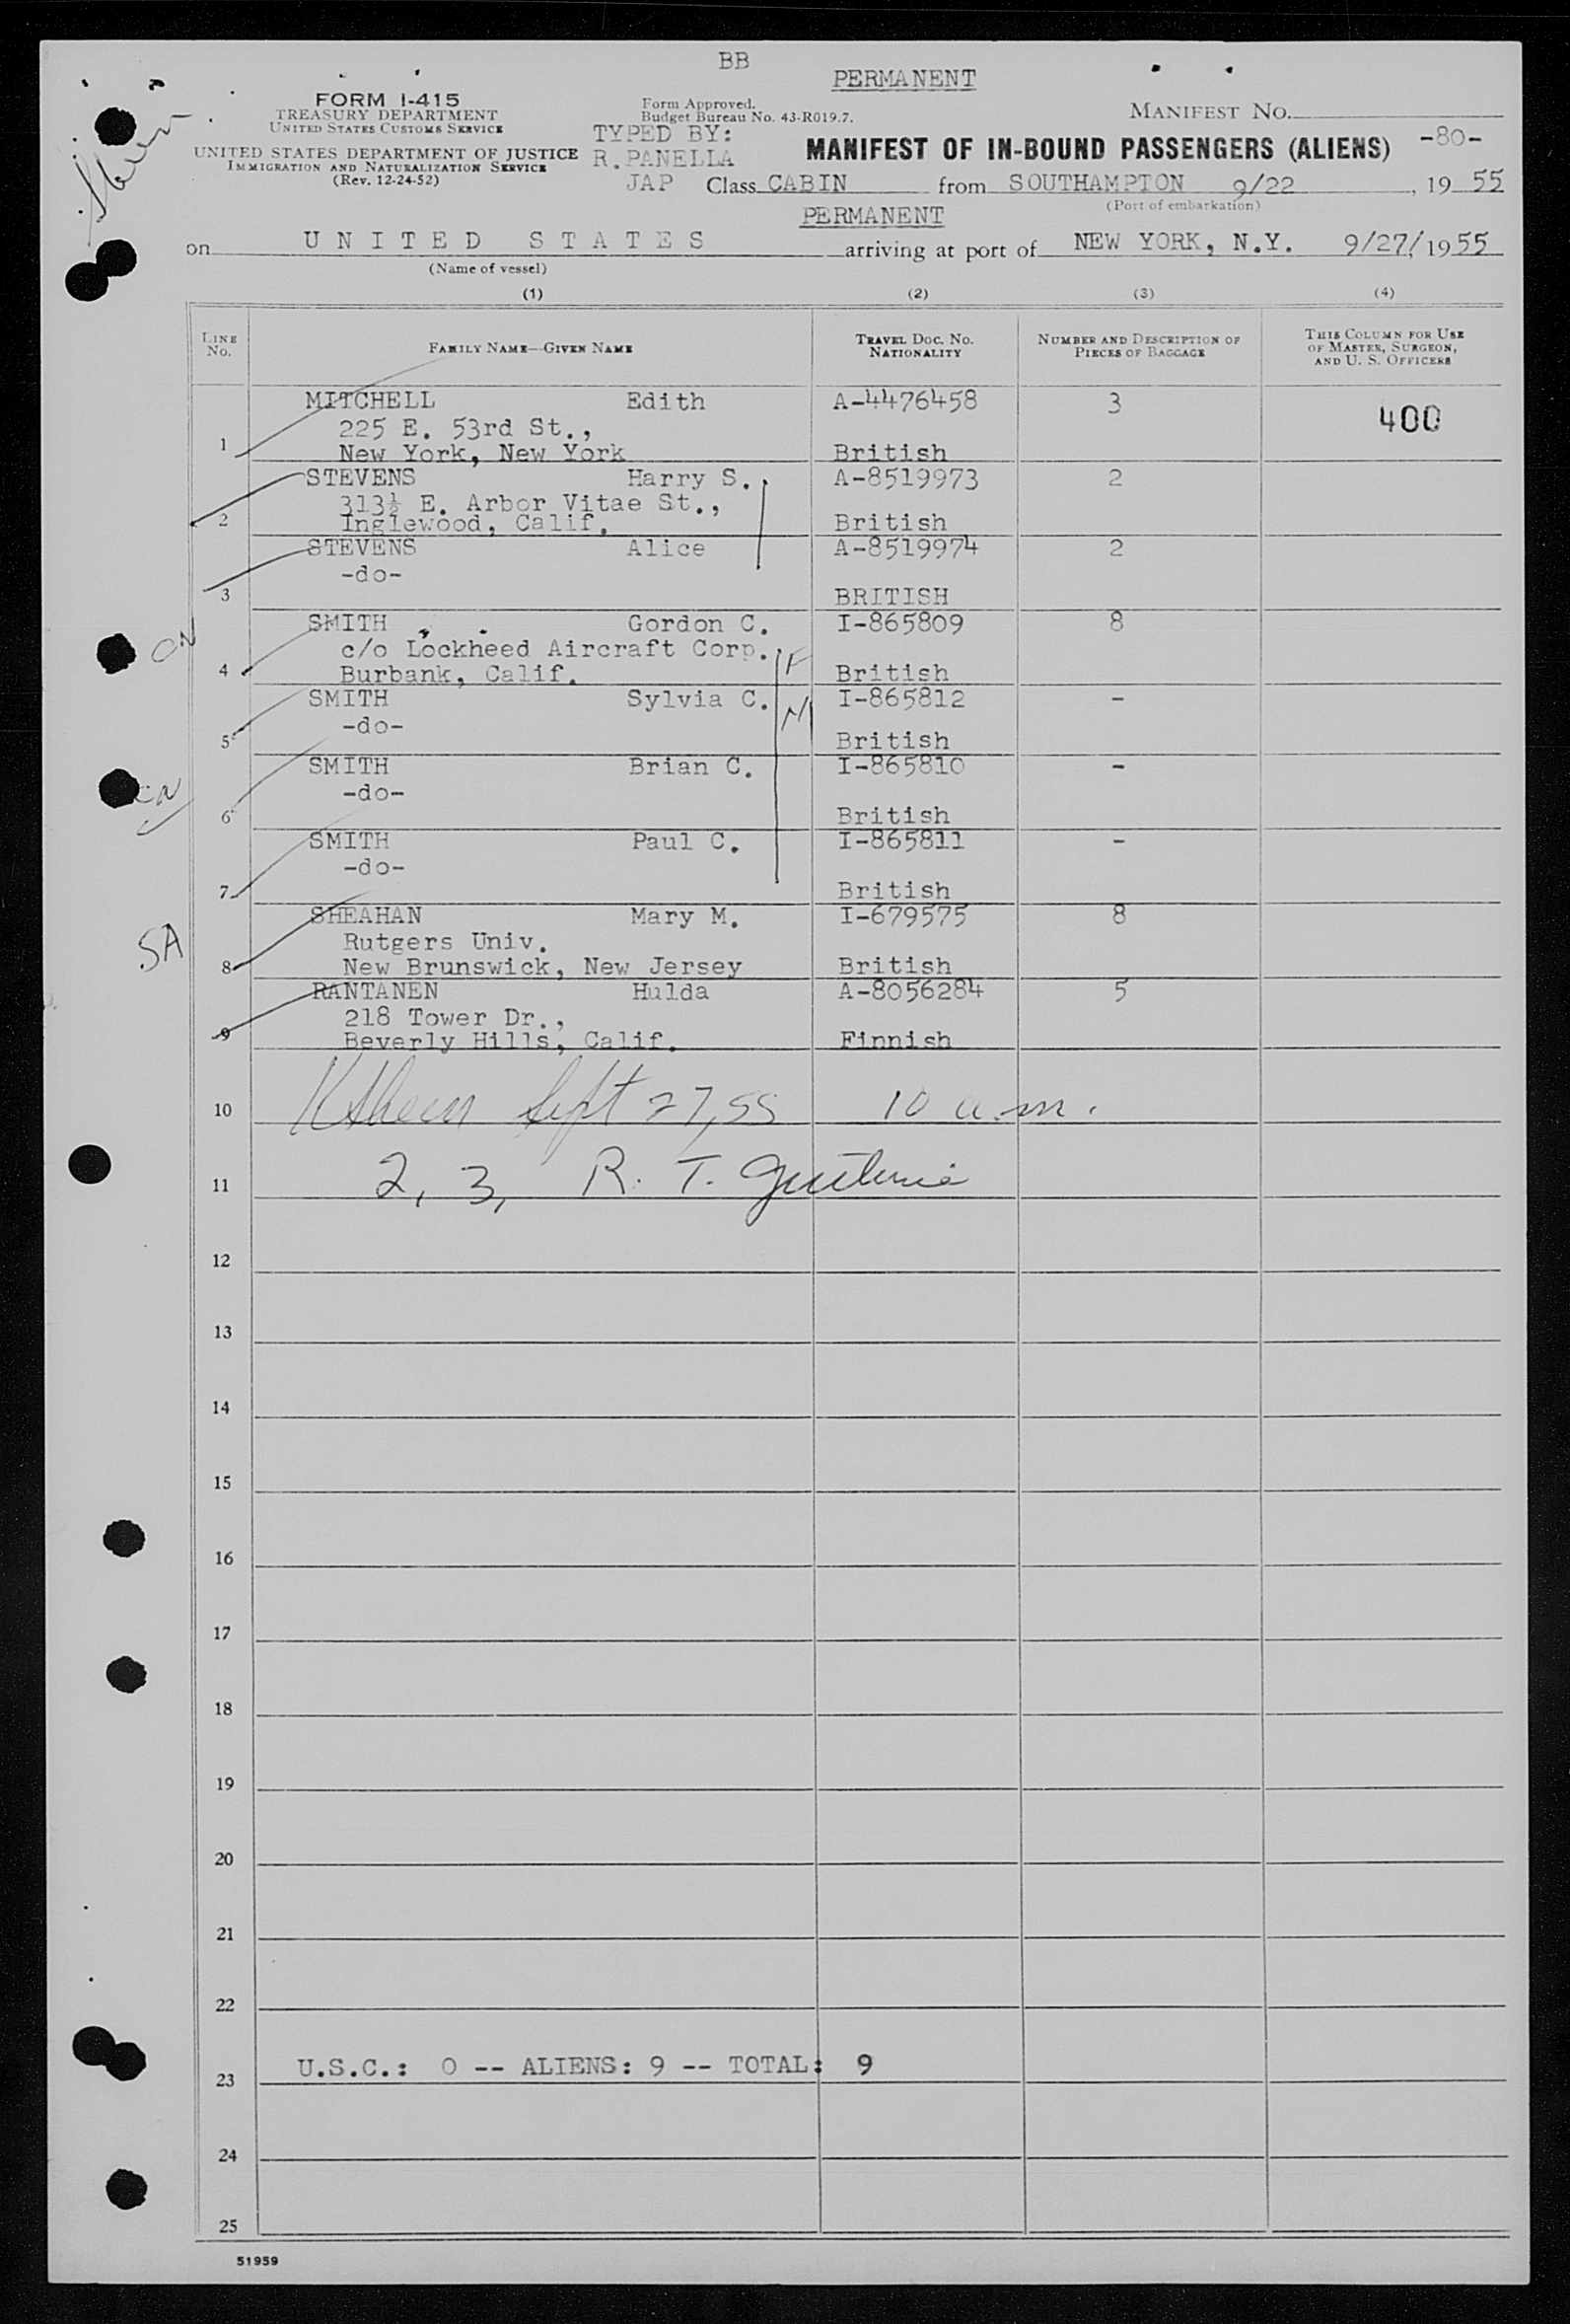 BB
PERMANENT
FORM I-415
TREASURY DEPARTMENT
UNITED STATES CUSTOMS SERVICE
UNITED STATES DEPARTMENT OF JUSTICE
IMMIGRATION AND NATURALIZATION SERVICE
(Rev. 12-24-52)
Form Approved.
Budget Bureau No. 43-R019.7.
TYPED BY:
R.PANELLA
JAP
MANIFEST NO.
-80-
MANIFEST OF IN-BOUND PASSENGERS (ALIENS)
Class CABIN from SOUTHAMPTON 9/22, 19 55
(Port of embarkation)
PERMANENT
on UNITED STATES arriving at port of NEW YORK, N.Y. 9/27/1955
(Name of vessel)
(1) (2) (3) (4)
LINE NO. FAMILY NAME—GIVEN NAME TRAVEL DOC. NO. NATIONALITY NUMBER AND DESCRIPTION OF PIECES OF BAGGAGE THIS COLUMN FOR USE OF MASTER, SURGEON, AND U. S. OFFICERS
MITCHELL Edith A-4476458 3 400
225 E. 53rd St.,
1 New York, New York British
STEVENS Harry S. A-8519973 2
313½ E. Arbor Vitae St.,
2 Inglewood, Calif. British
STEVENS Alice A-8519974 2
-do-
3 BRITISH
SMITH Gordon C. I-865809 8
c/o Lockheed Aircraft Corp. F
4 Burbank, Calif. British
SMITH Sylvia C. I-865812 -
-do- N
5 British
SMITH Brian C. I-865810 -
-do-
6 British
SMITH Paul C. I-865811 -
-do-
7 British
SHEAHAN Mary M. I-679575 8
Rutgers Univ.
SA
8 New Brunswick, New Jersey British
RANTANEN Hulda A-8056284 5
218 Tower Dr.,
9 Beverly Hills, Calif. Finnish
10 Sept 27, 55 10 a.m.
11 2, 3, R. T.
12
13
14
15
16
17
18
19
20
21
22
23 U.S.C.: 0 -- ALIENS: 9 -- TOTAL: 9
24
25
51959